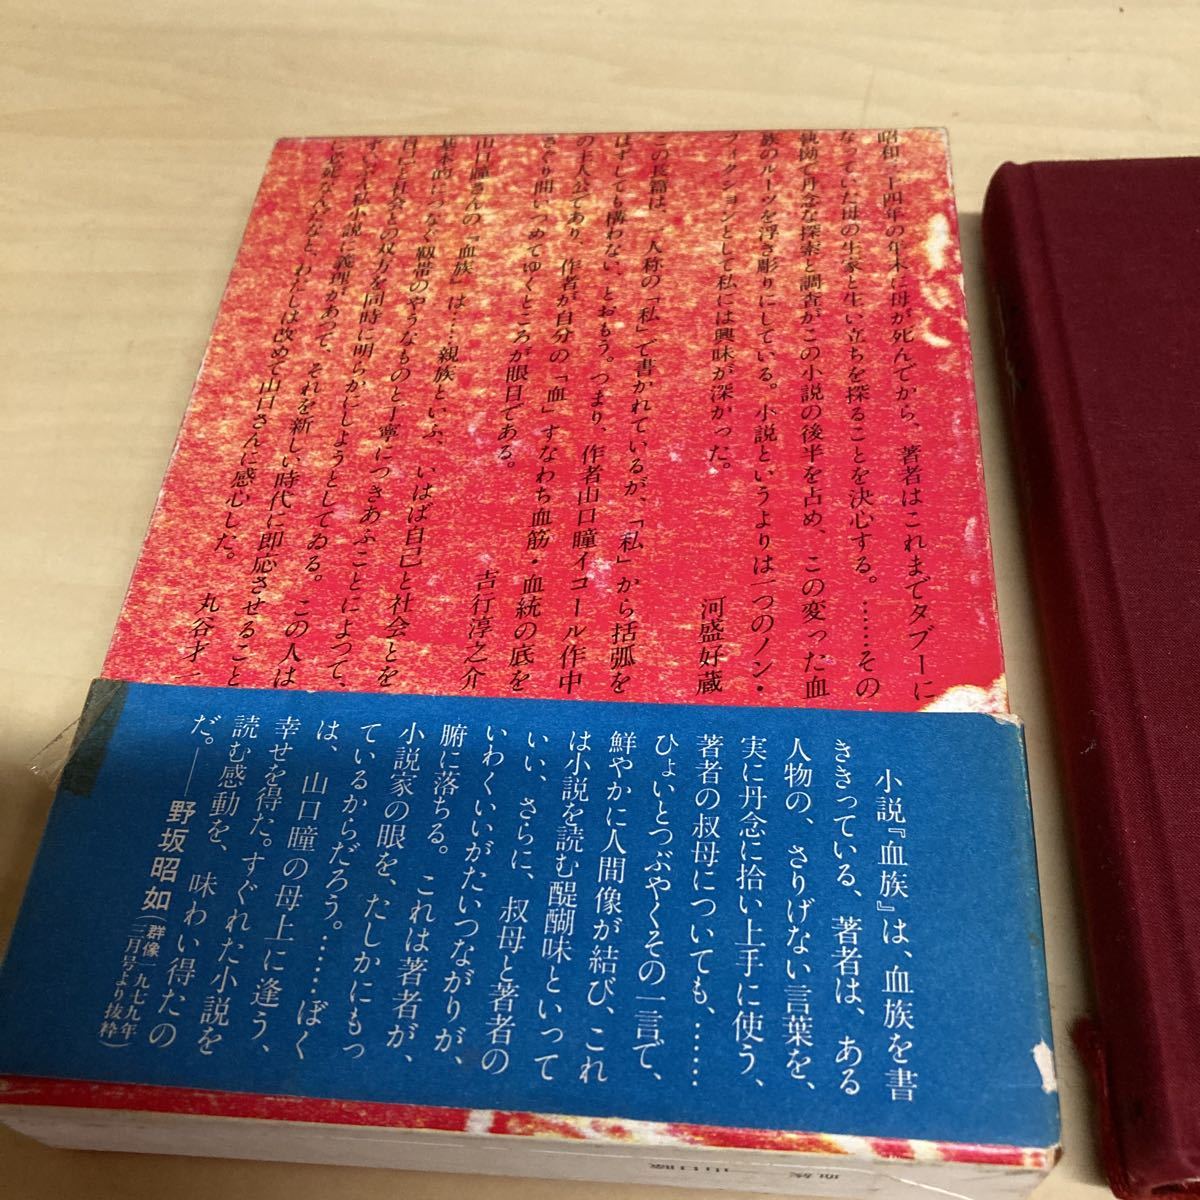 昭和三十四年の年末に母が死んでから、著者はこれまでタブーに
なっていた母の生家と生い立ちを探ることを決心する。……その
執拗で丹念な探索と調査がこの小説の後半を占め、この変った血
族のルーツを浮き彫りにしている。小説というよりは一つのノン・
フィクションとして私には興味が深かった。
河盛好蔵
この長篇は、一人称の「私」で書かれているが、「私」から括弧を
はずしても構わない、とおもう。つまり、作者山口瞳イコール作中
の主人公であり、作者が自分の「血」すなわち血筋・血統の底を
さぐり問いつめてゆくところが眼目である。
吉行淳之介
山口瞳さんの『血族』は……親族といふ、いはば自己と社会とを
基本的につなぐ靱帯のやうなものと丁寧につきあふことによって、
自己と社会との双方を同時に明らかにしようとしてゐる。この人は
ずいぶん私小説に義理があつて、それを新しい時代に即応させること
に必死なんだなと、わたしは改めて山口さんに感心した。
丸谷才一
小説『血族』は、血族を書
ききっている、著者は、ある
人物の、さりげない言葉を、
実に丹念に拾い上手に使う、
著者の叔母についても、……
ひょいとつぶやくその一言で、
鮮やかに人間像が結び、これ
は小説を読む醍醐味といって
いい、さらに、叔母と著者の
いわくいいがたいつながりが、
腑に落ちる。これは著者が、
小説家の眼を、たしかにもっ
ているからだろう。……ぼく
は、山口瞳の母上に逢う、
幸せを得た。すぐれた小説を
読む感動を、味わい得たの
だ。――野坂昭如(群像一九七九年
三月号より抜粋)
血族 山口瞳